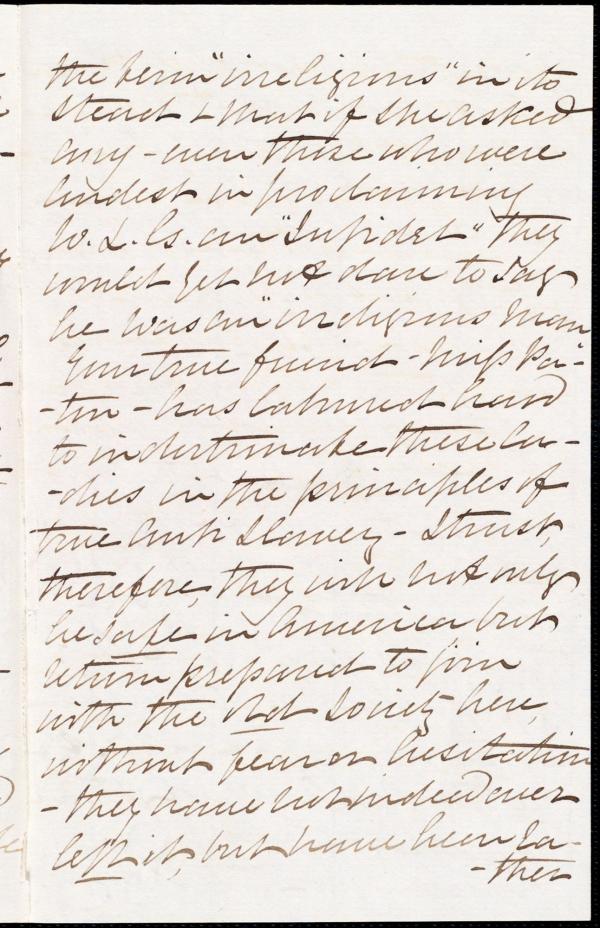 the term "irreligious" in its
stead & that if she asked
any - even those who were
loudest in proclaiming
W. L. Gs. an "Infidel" they
would yet not dare to say
he was an "irreligious man
Your true friend - Miss Pa-
-ton - has laboured hard
to indoctrinate these la-
-dies in the principles of
true Anti Slavery - I trust,
therefore, they will not only
be safe in America but
return prepared to join
with the old Society here,
without fear or hesitation
- they have not indeed ever
left it, but have been ra-
-ther